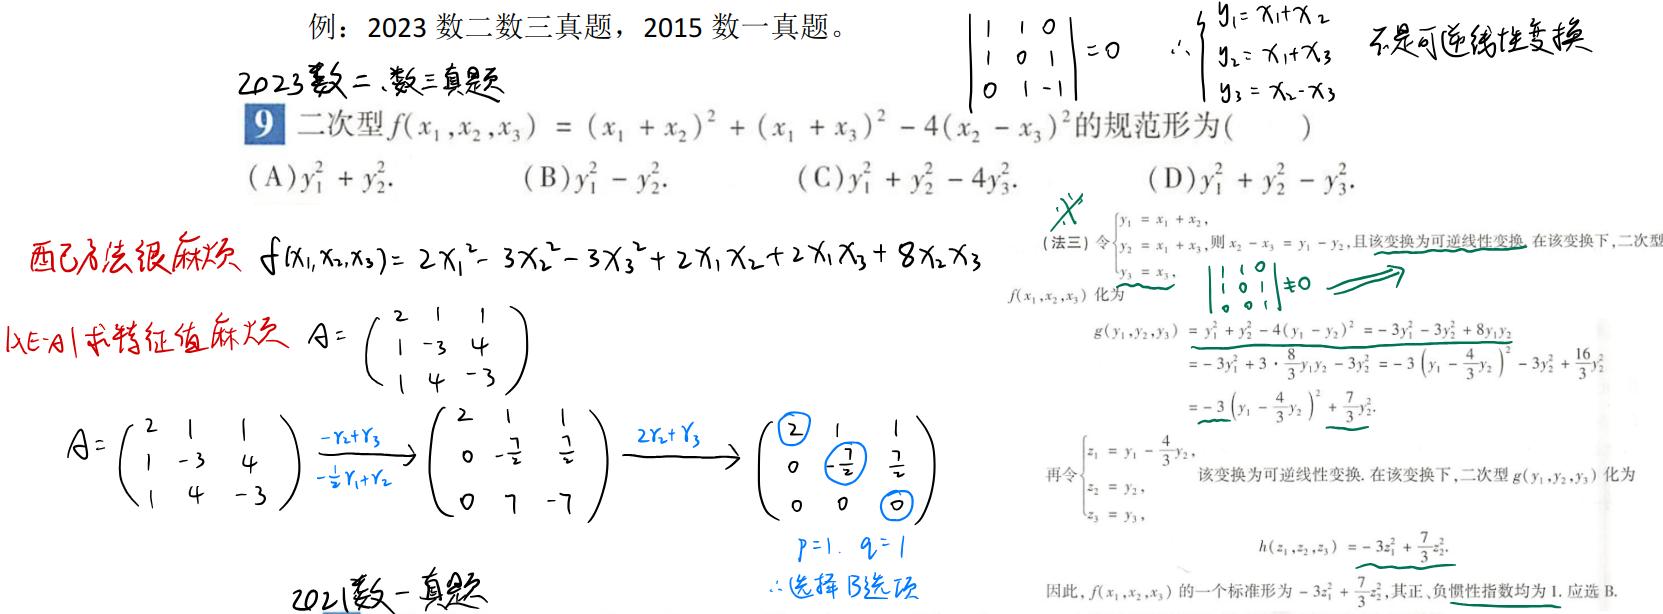 例：2023 数二数三真题，2015 数一真题。
2023数二、数三真题
|1 1 0; 1 0 1; 0 1 -1| = 0 ∴ { y₁ = x₁+x₂ y₂ = x₁+x₃ y₃ = x₂-x₃ 不是可逆线性变换
9 二次型 f(x₁,x₂,x₃) = (x₁ + x₂)² + (x₁ + x₃)² - 4(x₂ - x₃)² 的规范形为( )
(A) y₁² + y₂². (B) y₁² - y₂². (C) y₁² + y₂² - 4y₃². (D) y₁² + y₂² - y₃².
配方法很麻烦 f(x₁,x₂,x₃) = 2x₁² - 3x₂² - 3x₃² + 2x₁x₂ + 2x₁x₃ + 8x₂x₃
|λE-A|求特征值麻烦 A = (2 1 1; 1 -3 4; 1 4 -3)
A = (2 1 1; 1 -3 4; 1 4 -3) -r₂+r₃ -½r₁+r₂ → (2 1 1; 0 -7/2 7/2; 0 7 -7) 2r₂+r₃ → (2 1 1; 0 -7/2 7/2; 0 0 0)
p=1. q=1
∴选择B选项
2021数一真题
※
(法三) 令 { y₁ = x₁ + x₂, y₂ = x₁ + x₃, y₃ = x₃, 则 x₂ - x₃ = y₁ - y₂, 且该变换为可逆线性变换. 在该变换下,二次型
|1 1 0; 1 0 1; 0 0 1| ≠ 0
f(x₁,x₂,x₃) 化为
g(y₁,y₂,y₃) = y₁² + y₂² - 4(y₁ - y₂)² = -3y₁² - 3y₂² + 8y₁y₂
= -3y₁² + 3 · 8/3 y₁y₂ - 3y₂² = -3(y₁ - 4/3 y₂)² - 3y₂² + 16/3 y₂²
= -3(y₁ - 4/3 y₂)² + 7/3 y₂².
再令 { z₁ = y₁ - 4/3 y₂, z₂ = y₂, z₃ = y₃, 该变换为可逆线性变换. 在该变换下,二次型 g(y₁,y₂,y₃) 化为
h(z₁,z₂,z₃) = -3z₁² + 7/3 z₂².
因此, f(x₁,x₂,x₃) 的一个标准形为 -3z₁² + 7/3 z₂², 其正、负惯性指数均为 1. 应选 B.